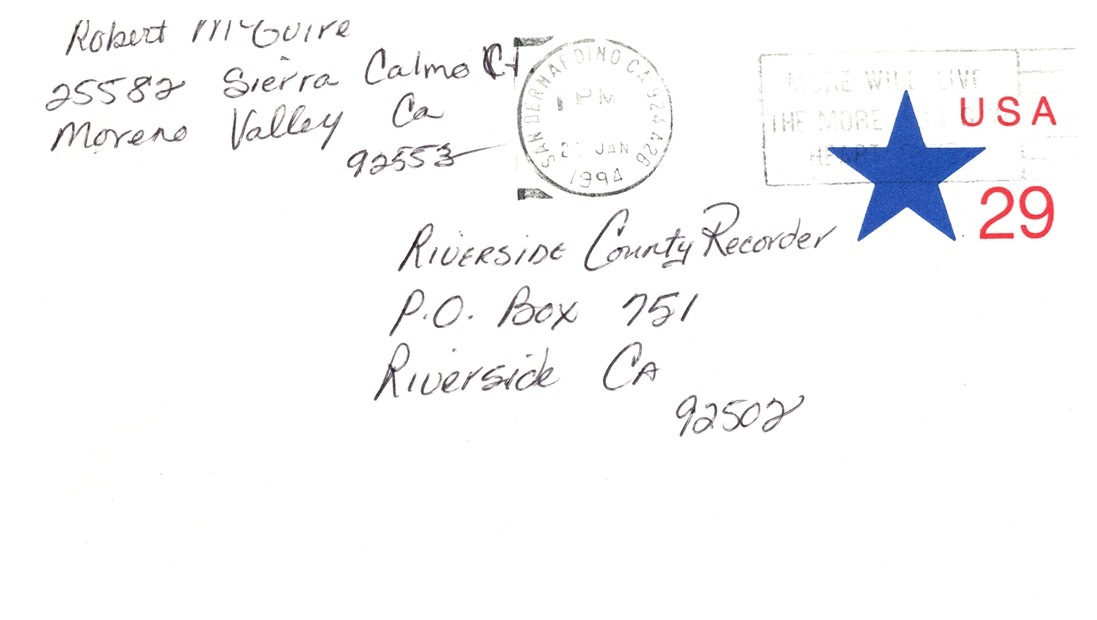 Robert McGuire
25582 Sierra Calmo Ct
Moreno Valley Ca
92553
SAN BERNARDINO CA 924 A26
PM
JAN
1994
MORE WILL LIVE
THE MORE
HEART
USA
29
RIVERSIDE County Recorder
P.O. Box 751
Riverside CA
92502